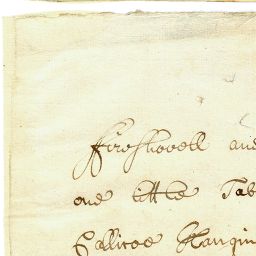 ffireshovell and
one little Tab
Callicoe Hangin